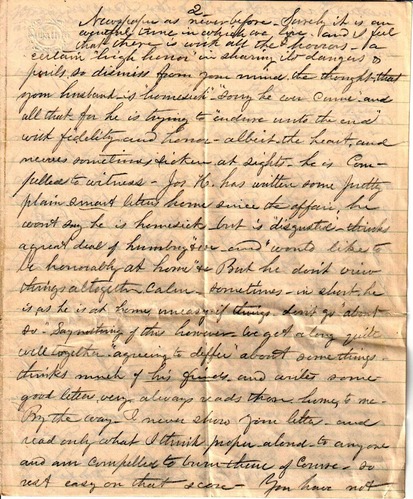 2
Newspapers as never before – Surely it is an
awful time in which we live – and I feel
that there is with all the horrors – a
certain "high honor" in sharing its dangers &
perils, so dismiss from your mind the thought that
your husband is homesick "sorry he ever came" and
all that for he is trying to "endure unto the end"
with fidelity and honor – albeit the heart and
nerves sometimes sicken at sights he is Com-
pelled to witness – Jos H. has written some pretty
plain smart letters home since the affair, he
won't say he is homesick but is "disgusted" – thinks
a great deal of humbug &c – and "would like to
be honorably at home" & But he don't view
things altogether calm – sometimes – in short he
is as he is at home, uneasy if things don't go about
so – Say nothing of this however – We get along quite
well together "agreeing to differ" about some things –
thinks much of his friends – and writes some
good letters very – always reads them home to me –
By the way – I never show your letters – and
read only what I think proper aloud – to anyone
and am compelled to burn them of course – so
rest easy on that score – You have not